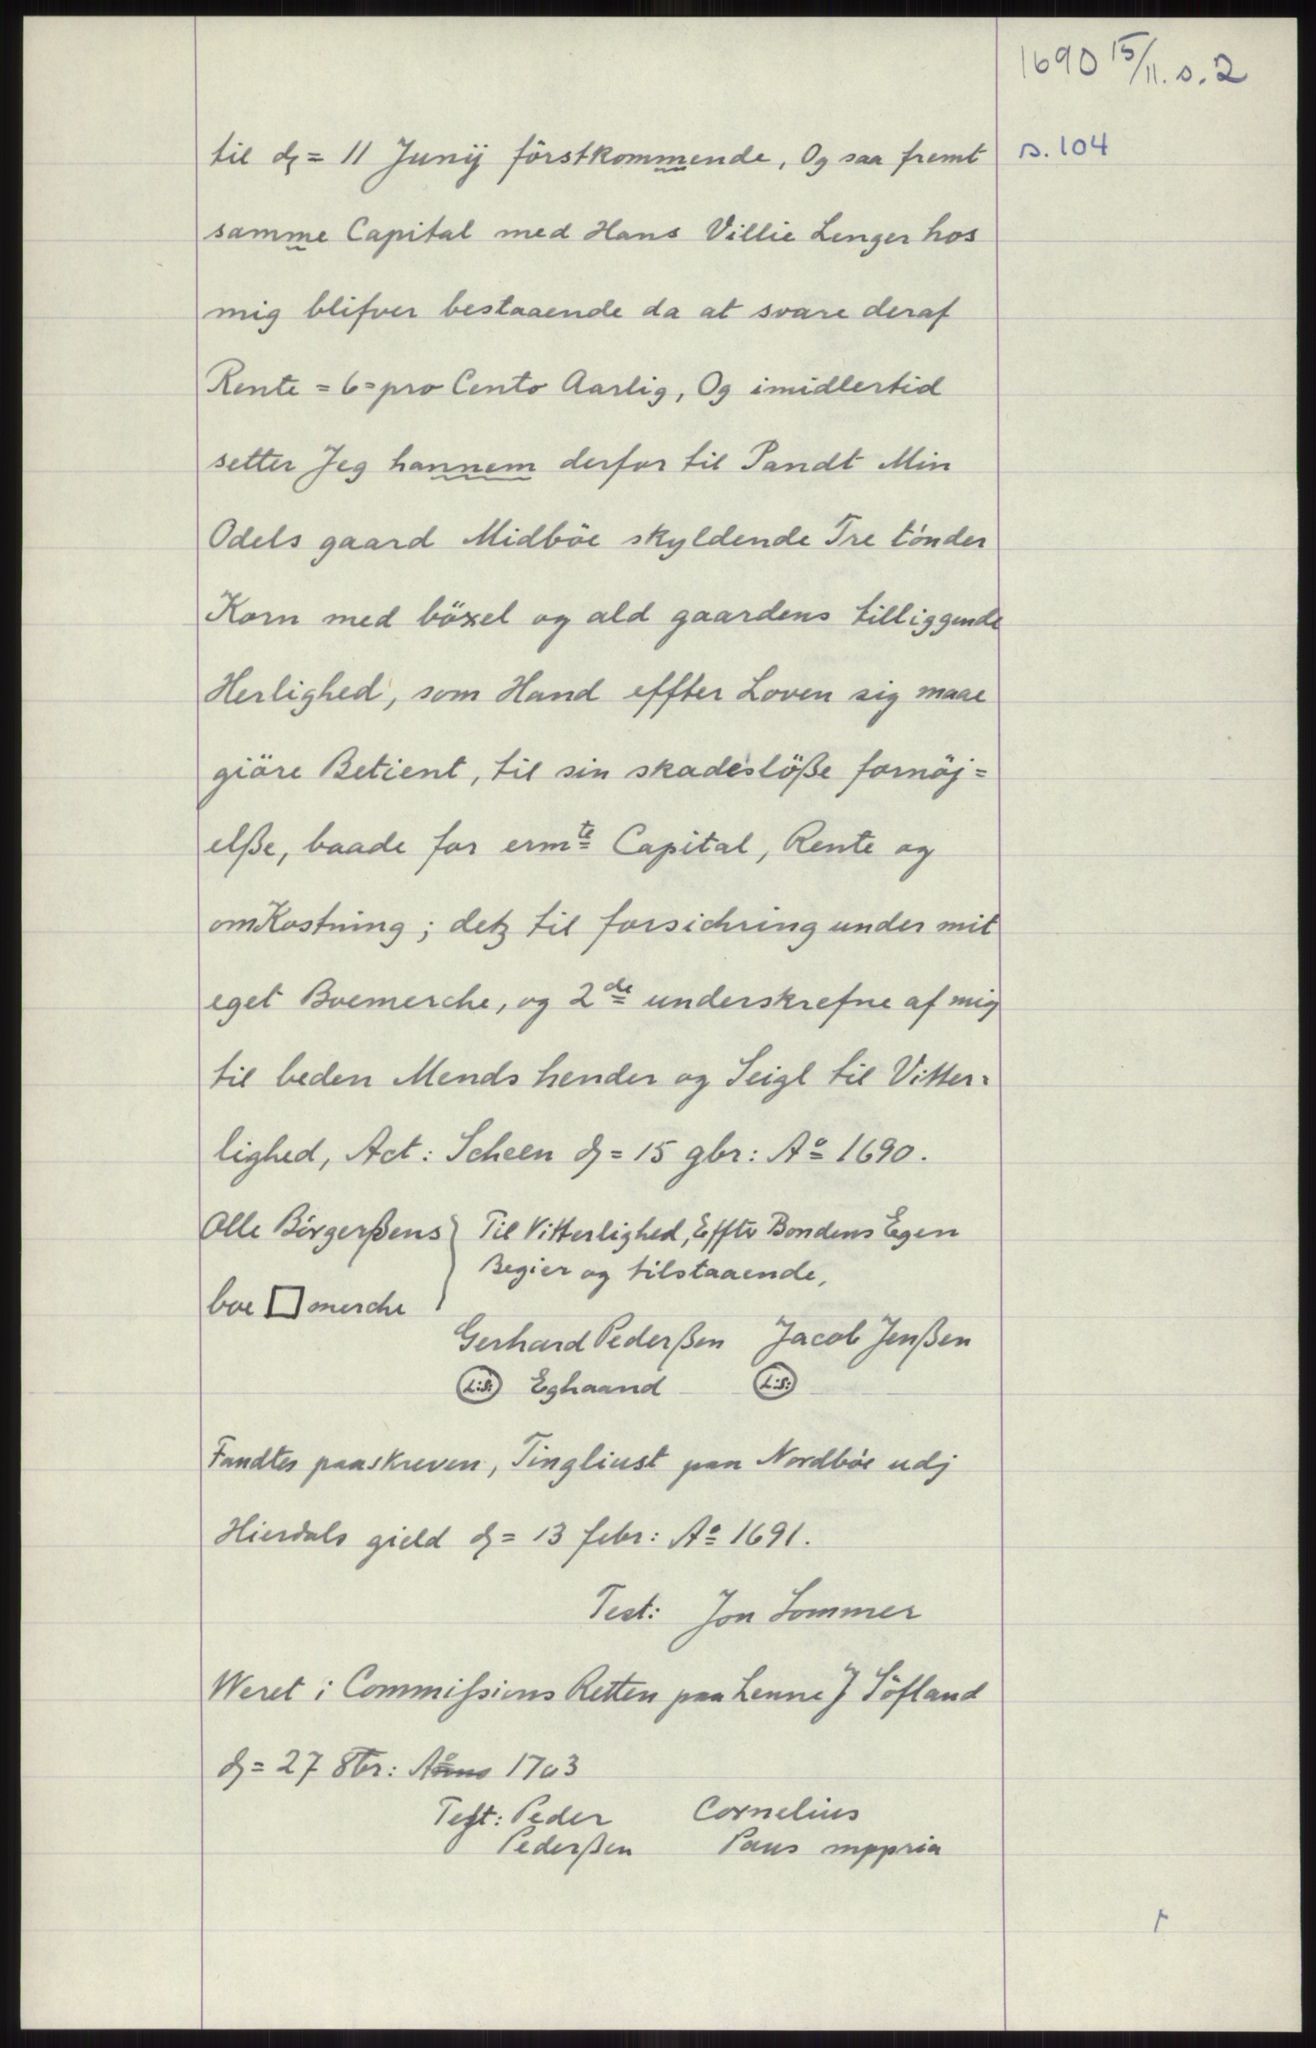 1690 15/11. s. 2
s. 104
til d = 11 Junij förstkommende, Og saa fremt
samme Capital med Hans Villie Lenger hos
mig blifver bestaaende da at svare deraf
Rente = 6 = pro Cento Aarlig, Og imidlertid
setter Jeg hannem derfor til Pandt Min
Odels gaard Midböe skyldende Tre tönder
Korn med böxel og ald gaardens tilliggende
Herlighed, som Hand effter Loven sig maae
giöre Betient, til sin skadeslöße fornöj=
elße, baade for ermte Capital, Rente og
omKostning; detz til forsichring under mit
eget Boemerche, og 2de underskrefne af mig
til beden Mends hender og Seigl til Vitter=
lighed, Act: Scheen d = 15 9br: Ao 1690.
Olle Börgerßens } Til Vitterlighed, Effter Bondens Egen
Begier og tilstaaende,
boe □ merche
Gerhard Pederßen Jacob Jenßen
L:S: Eghaand L:S:
Fandtes paaskreven, Tingliust paa Nordböe udj
Hierdals gield d = 13 febr: Ao 1691.
Test: Jon Sommer
Weret i Commissions Retten paa Lenne J Söfland
d = 27 8br: Ao 1703
Test: Peder Cornelius
Pederßen Paus mppria